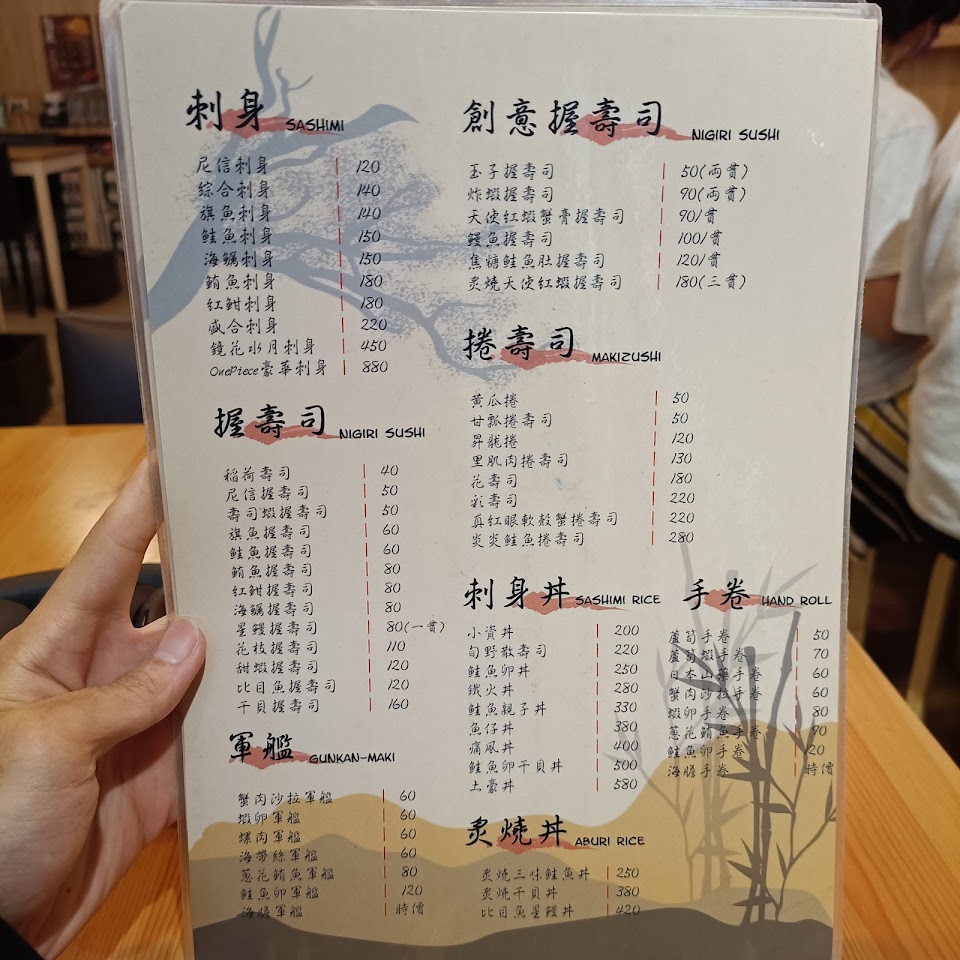 刺身 SASHIMI
尼信刺身 120
綜合刺身 140
旗魚刺身 140
鮭魚刺身 150
海鱺刺身 150
鮪魚刺身 180
紅魽刺身 180
盛合刺身 220
鏡花水月刺身 450
OnePiece豪華刺身 880
握壽司 NIGIRI SUSHI
稻荷壽司 40
尼信握壽司 50
壽司蝦握壽司 50
旗魚握壽司 60
鮭魚握壽司 60
鮪魚握壽司 80
紅魽握壽司 80
海鱺握壽司 80
星鰻握壽司 80(一貫)
花枝握壽司 110
甜蝦握壽司 120
比目魚握壽司 120
干貝握壽司 160
軍艦 GUNKAN-MAKI
蟹肉沙拉軍艦 60
蝦卵軍艦 60
螺肉軍艦 60
海帶絲軍艦 60
蔥花鮪魚軍艦 80
鮭魚卵軍艦 120
海膽軍艦 時價
創意握壽司 NIGIRI SUSHI
玉子握壽司 50(両貫)
炸蝦握壽司 90(両貫)
天使紅蝦蟹膏握壽司 90/貫
鰻魚握壽司 100/貫
焦糖鮭魚肚握壽司 120/貫
炙燒天使紅蝦握壽司 180(三貫)
捲壽司 MAKIZUSHI
黃瓜捲 50
甘瓢捲壽司 50
昇龍捲 120
里肌肉捲壽司 130
花壽司 180
彩壽司 220
真紅眼軟殼蟹捲壽司 220
炎炎鮭魚捲壽司 280
刺身丼 SASHIMI RICE
小資丼 200
旬野散壽司 220
鮭魚卵丼 250
鐵火丼 280
鮭魚親子丼 330
魚仔丼 380
痛風丼 400
鮭魚卵干貝丼 500
土豪丼 580
手卷 HAND ROLL
蘆筍手卷 50
蘆筍蝦手卷 70
日本山藥手卷 60
蟹肉沙拉手卷 60
蝦卵手卷 80
蔥花鮪魚手卷 90
鮭魚卵手卷
海膽手卷 時價
炙燒丼 ABURI RICE
炙燒三味鮭魚丼 250
炙燒干貝丼 380
比目魚星鰻丼 420